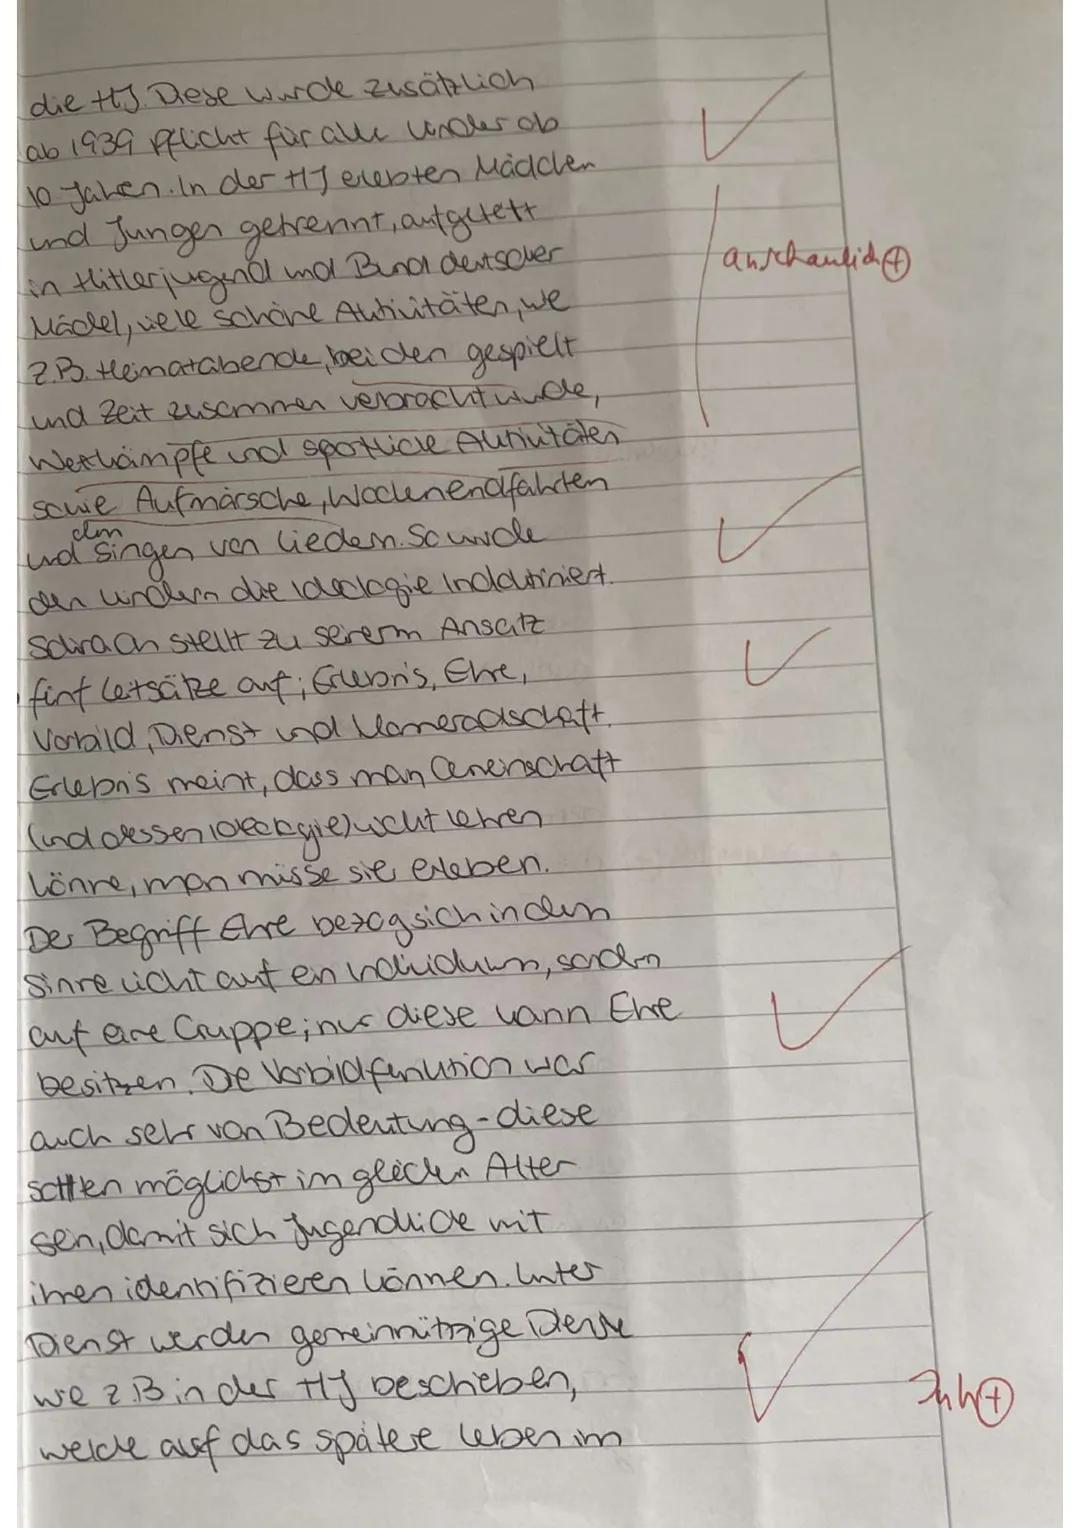 die HJ. Diese wurde zusätzlich
ab 1939 Pflicht für alle Kinder ab
10 Jahren. In der HJ erlebten Mädchen
und Jungen getrennt, aufgeteilt
in Hitlerjugend und Bund deutscher
Mädel, viele schöne Aktivitäten, wie
z.B. Heimatabende, bei den gespielt
und Zeit zusammen verbracht wurde,
Wettkämpfe und sportliche Aktivitäten
sowie Aufmärsche, Wochenendfahrten
dem
und Singen von Liedern. So wurde
den Kindern die Ideologie indoktriniert.
Schirach stellt zu seinem Ansatz
fünf Leitsätze auf; Erlebnis, Ehre,
Vorbild, Dienst und Kameradschaft.
Erlebnis meint, dass man Gemeinschaft
(und dessen Ideologie) nicht lehren
könne, man müsse sie erleben.
Der Begriff Ehre bezog sich in dem
Sinne nicht auf ein Individuum, sondern
auf eine Gruppe; nur diese kann Ehre
besitzen. Die Vorbildfunktion war
auch sehr von Bedeutung - diese
sollten möglichst im gleichen Alter
sein, damit sich Jugendliche mit
ihnen identifizieren können. Unter
Dienst werden gemeinnützige Dienste
wie z.B in der HJ beschrieben,
welche auf das spätere Leben im
anschaulich +
Inh +